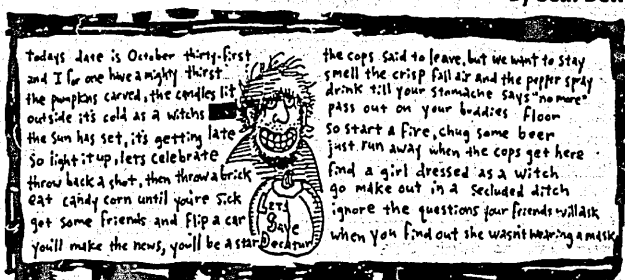 Todays date is October thirty-first
and I for one have a mighty thirst
the pumpkins carved, the candles lit
outside it's cold as a witchs
the sun has set, it's getting late
So light it up, lets celebrate
throw back a shot, then throw a brick
eat candy corn until you're sick
get some friends and flip a car
youll make the news, youll be a star
Let's
Save
Decatur
the cops said to leave, but we want to stay
smell the crisp fall air and the pepper spray
drink till your stomache says "no more"
pass out on your buddies floor
So start a fire, chug some beer
just run away when the cops get here
find a girl dressed as a witch
go make out in a secluded ditch
ignore the questions your friends will ask
when you find out she wasn't wearing a mask